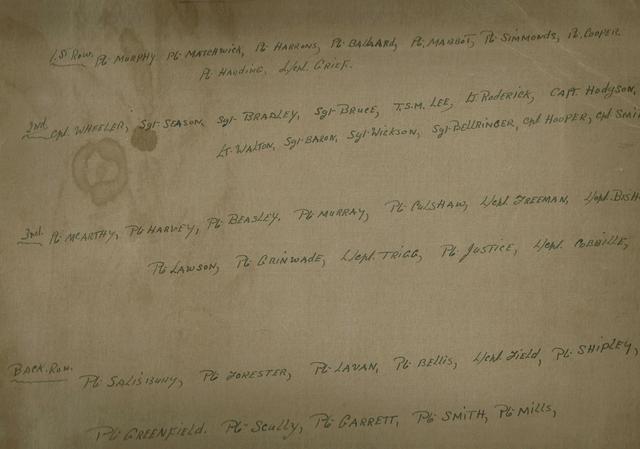 1.st Row. Pt. MURPHY Pt. MATCHWICK, Pt. HARRONS, Pt. BALLARD, Pt. MABBOT, Pt. SIMMONDS, Pt. COOPER
Pt. HARDING, L/cpl. GRIEF.
2nd. Cpl. WHEELER, Sgt. SEASON, Sgt. BRADLEY, Sgt. BRUCE, T.S.M. LEE, Lt. RODERICK, CAPT. HODYSON,
Lt. WALTON, Sgt. BARON, Sgt. WICKSON, Sgt. BELLRINGER, Cpl. HOOPER, Cpl.
3rd. Pt. MCARTHY, Pt. HARVEY, Pt. BEASLEY. Pt. MURRAY, Pt. CULSHAW, L/cpl. FREEMAN, L/cpl. BISH
Pt. LAWSON, Pt. GRINWADE, L/cpl. TRIGG, Pt. JUSTICE, L/cpl. COBBILLE,
BACK. ROW. Pt. SALISBURY, Pt. FORESTER, Pt. LAVAN, Pt. BELLIS, L/cpl. FIELD, Pt. SHIPLEY,
Pt. GREENFIELD. Pt. SCULLY, Pt. GARRETT, Pt. SMITH, Pt. MILLS,